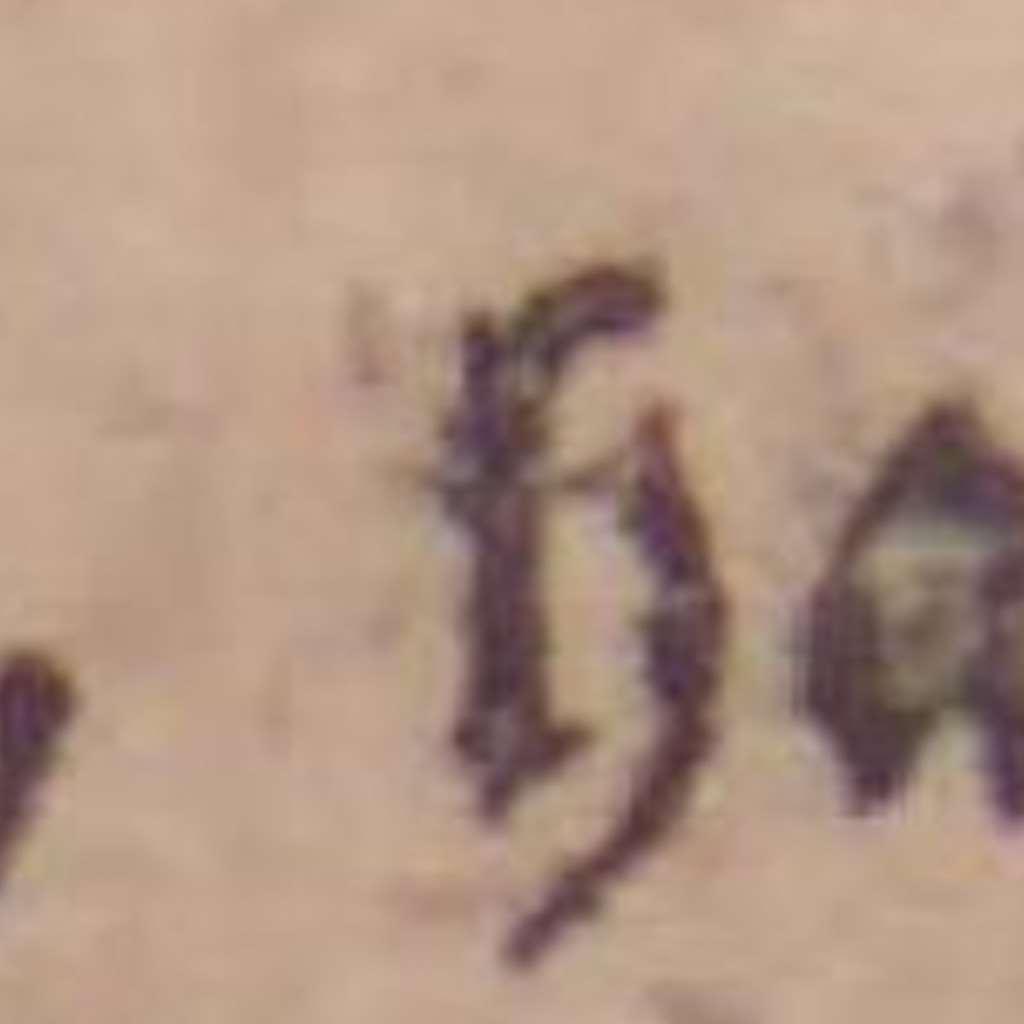 , ha